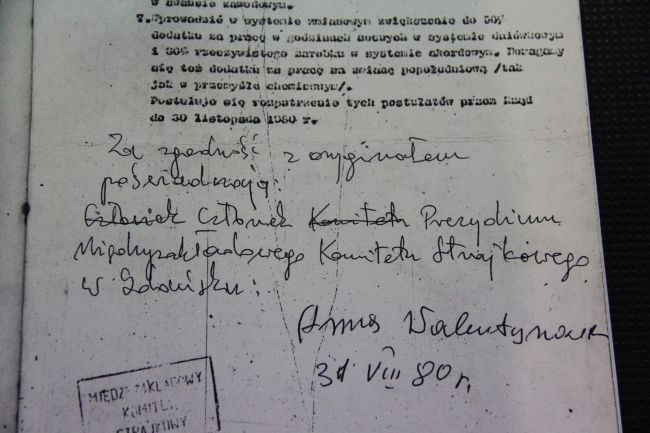 w awansie zawodowym.
7. Wprowadzić w systemie zmianowym zwiększenie do 50%
dodatku za pracę w godzinach nocnych w systemie dniówkowym
i 30% rzeczywistego zarobku w systemie akordowym. Domagamy
się też dodatku za pracę na zmianę popołudniową /tak
jak w przemyśle chemicznym/.
Postuluje się rozpatrzenie tych postulatów przez Rząd
do 30 listopada 1980 r.
Za zgodność z oryginałem
poświadczają:
Członek Członek Komitetu Prezydium
Międzyzakładowego Komitetu Strajkowego
w Gdańsku:
Anna Walentynowicz
31 VIII 80 r.
MIĘDZYZAKŁADOWY
KOMITET
STRAJKOWY